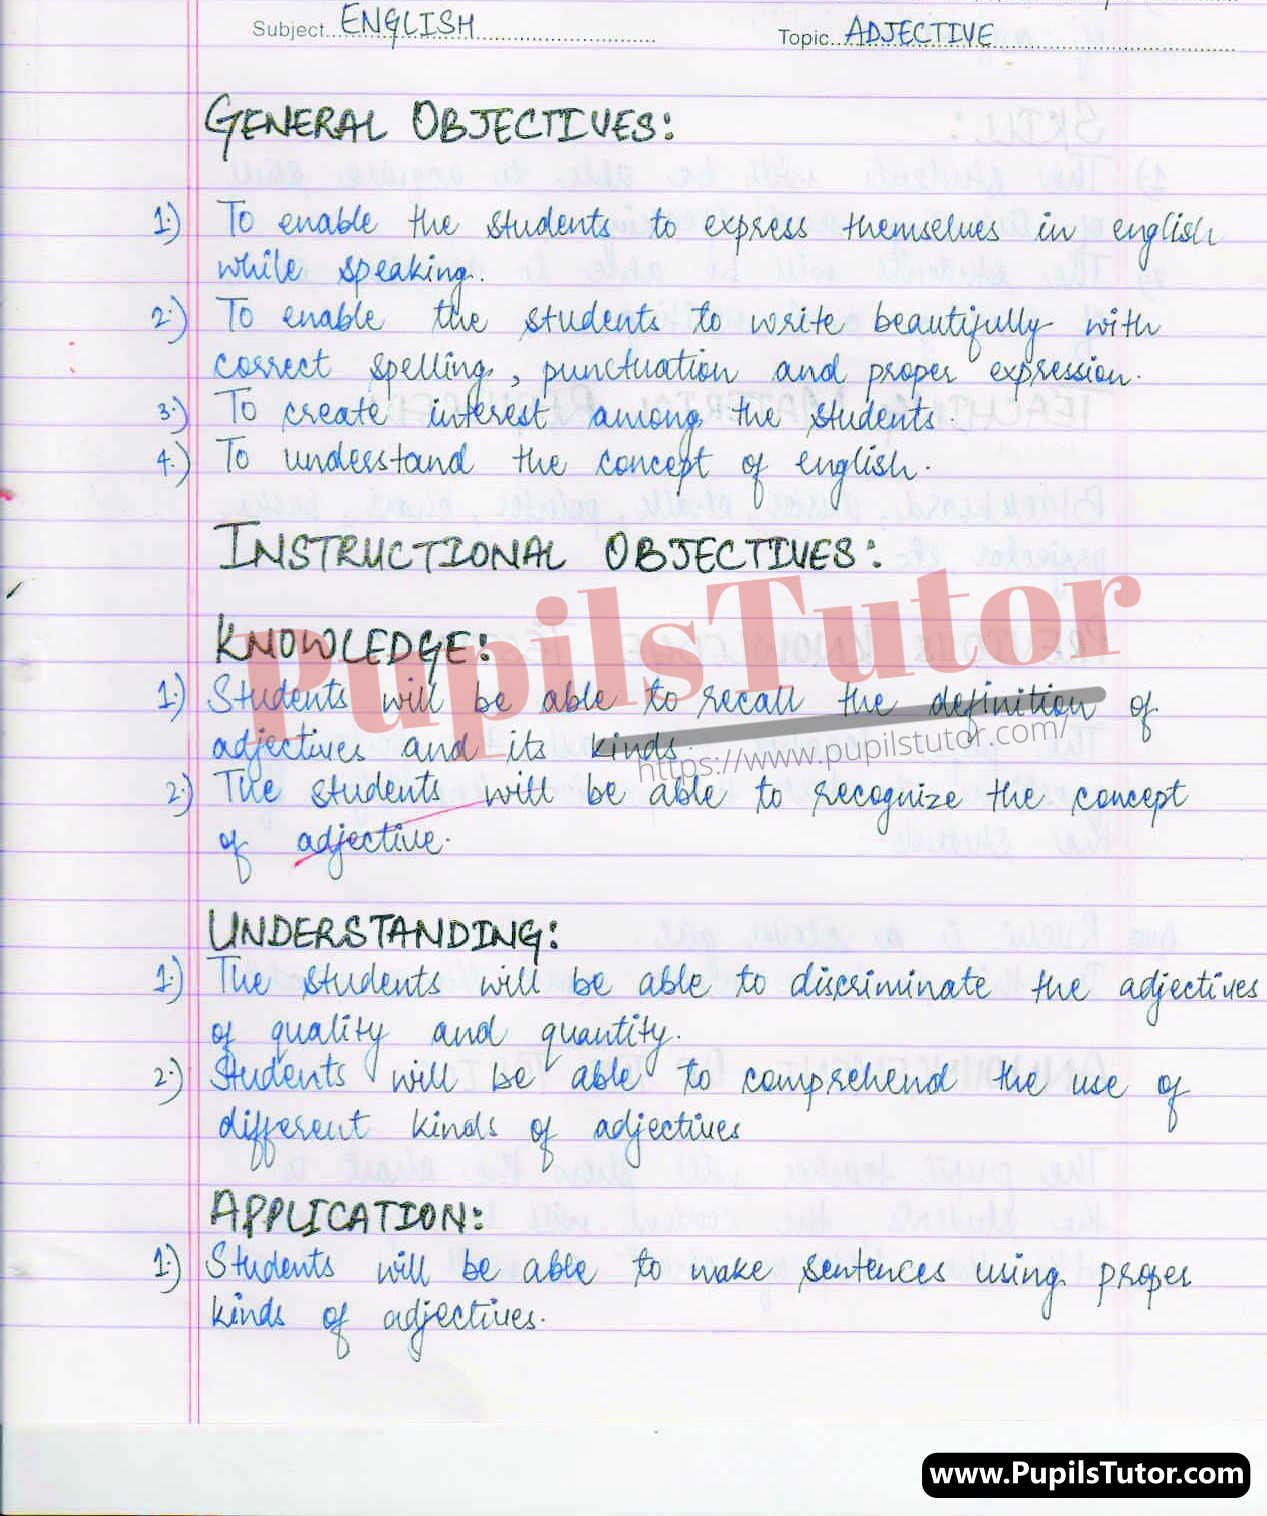 Subject ENGLISH Topic ADJECTIVE
GENERAL OBJECTIVES:
1.) To enable the students to express themselves in english
while speaking.
2.) To enable the students to write beautifully with
correct spelling, punctuation and proper expression.
3.) To create interest among the students.
4.) To understand the concept of english.
INSTRUCTIONAL OBJECTIVES:
KNOWLEDGE:
1.) Students will be able to recall the definition of
adjectives and its kinds.
2.) The students will be able to recognize the concept
of adjective.
UNDERSTANDING:
1.) The students will be able to discriminate the adjectives
of quality and quantity.
2.) Students will be able to comprehend the use of
different kinds of adjectives
APPLICATION:
1.) Students will be able to make sentences using proper
kinds of adjectives.
PupilsTutor
https://www.pupilstutor.com/
www.PupilsTutor.com